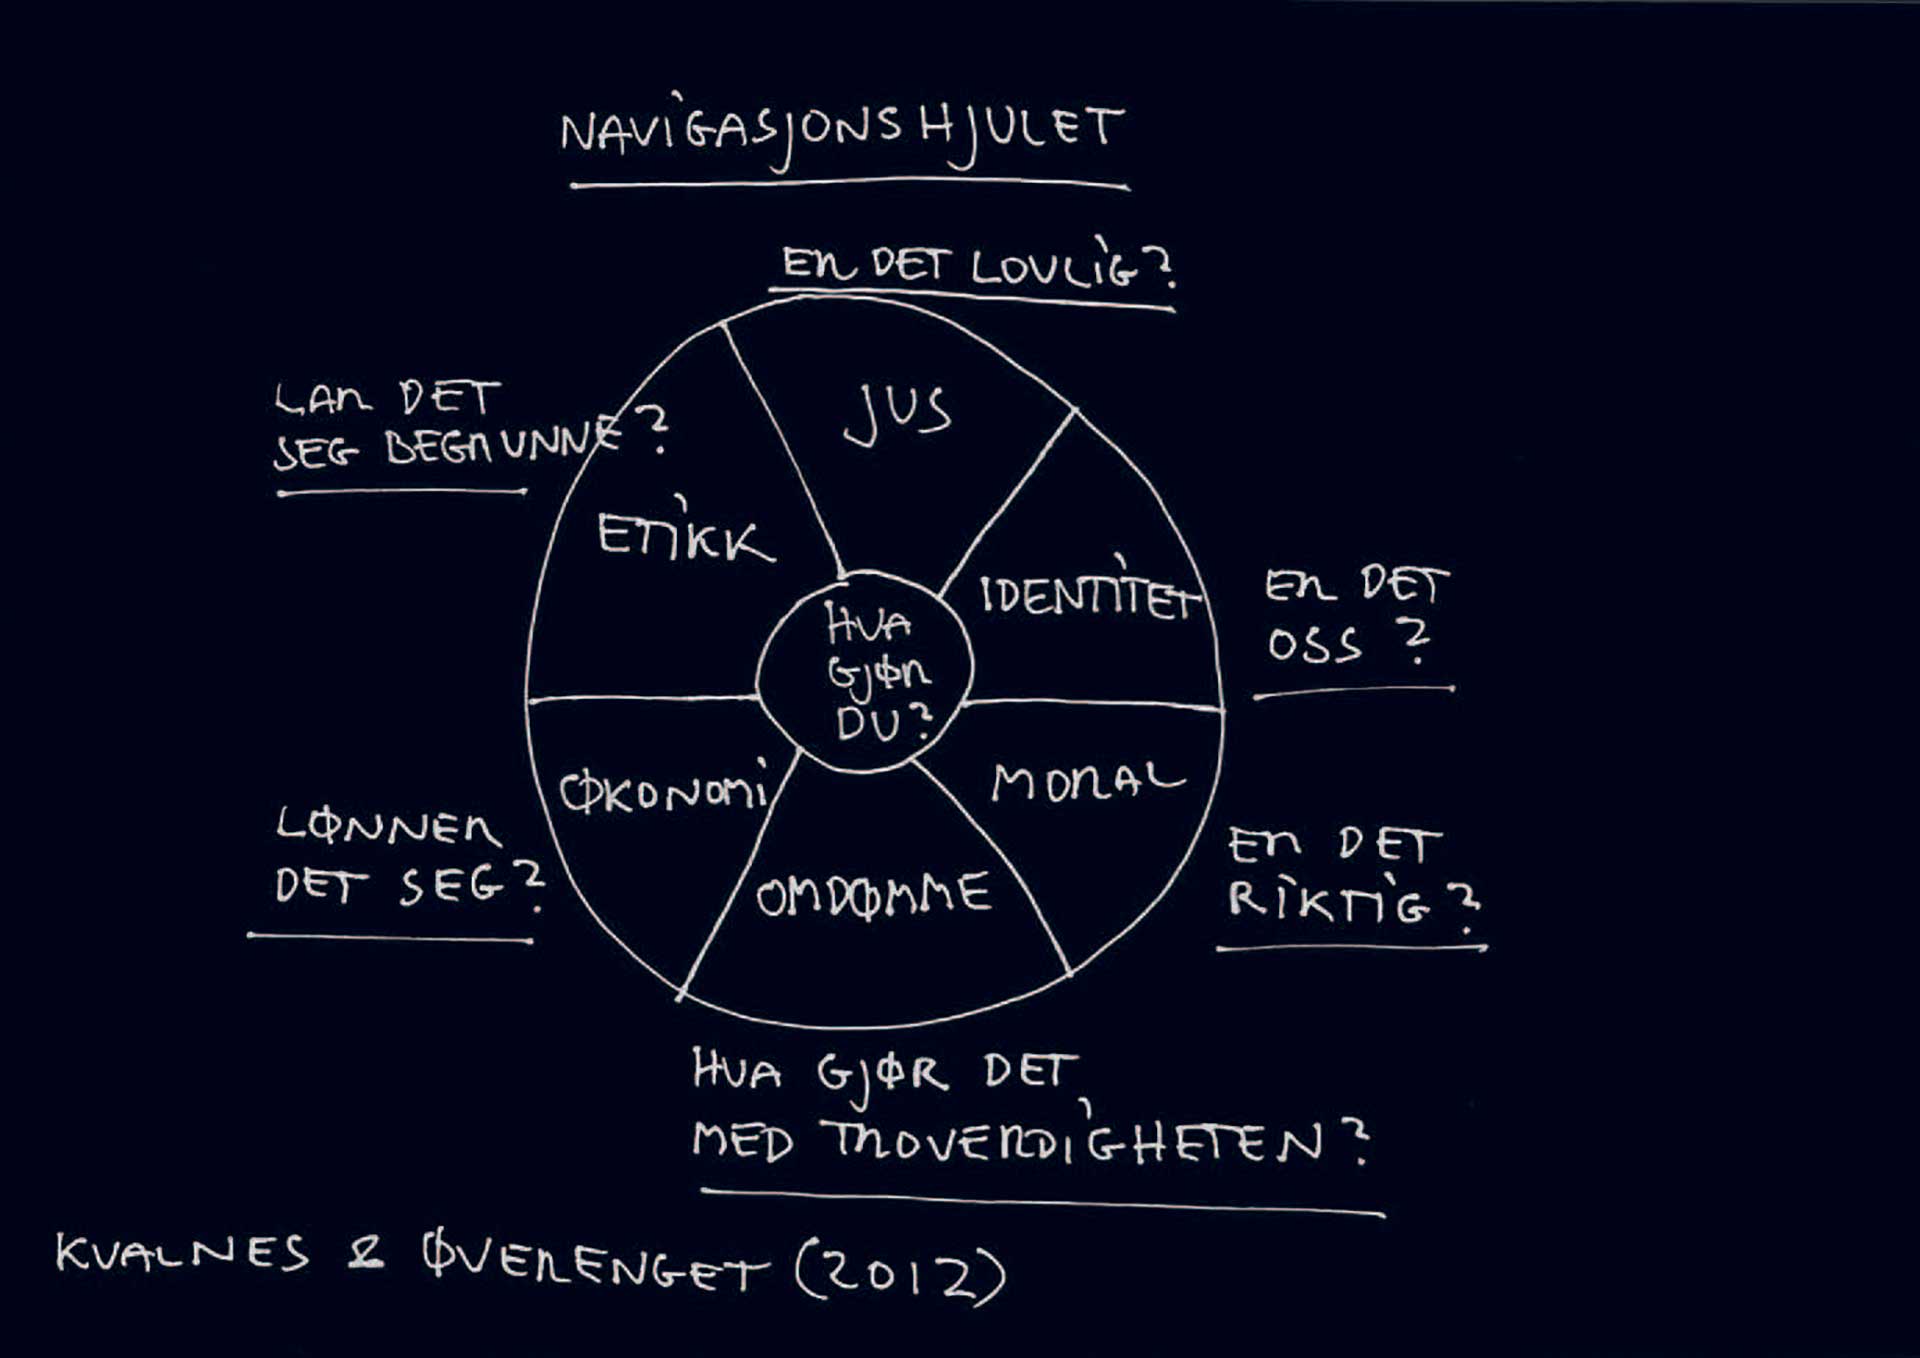 NAVIGASJONSHJULET
ER DET LOVLIG?
LAR DET
SEG BEGRUNNE?
JUS
ETIKK
IDENTITET
ER DET
OSS?
HVA
GJØR
DU?
ØKONOMI
MORAL
LØNNER
DET SEG?
OMDØMME
ER DET
RIKTIG?
HVA GJØR DET
MED TROVERDIGHETEN?
KVALNES & ØVERENGET (2012)